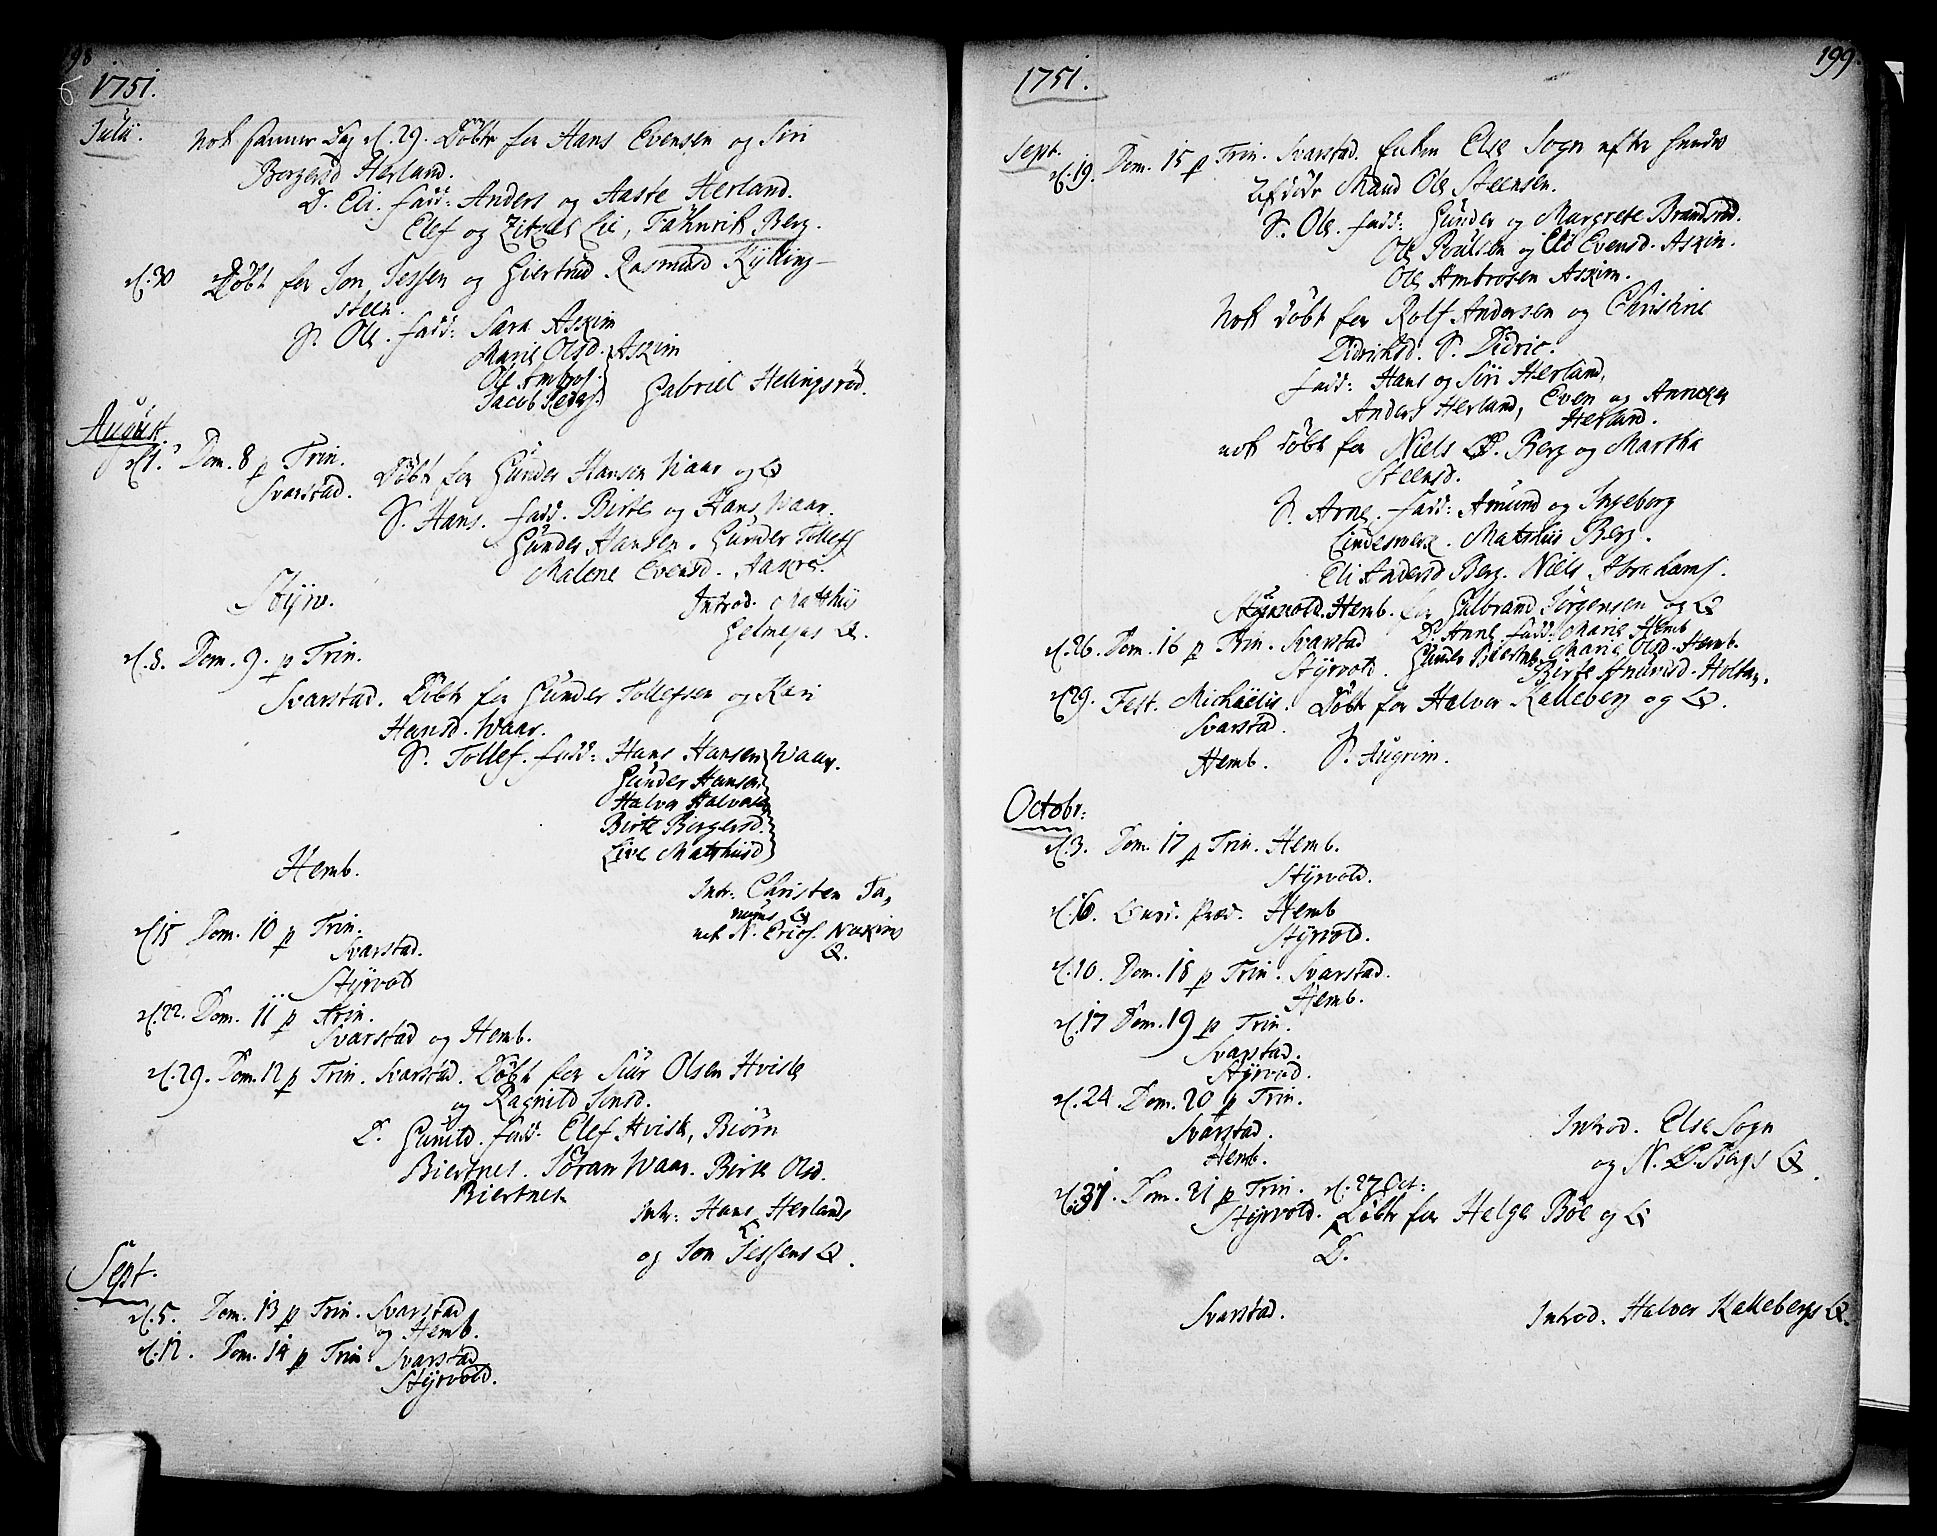 198
1751.
Julii.
Nok samme Dag d. 29. Døbt for Hans Evensen og Siri
Borgersd Herland.
D. Eli. fadd: Anders og Aaste Herland.
Elef og Zitzel Lie, Fahnrik Berg.
d. 30 Døbt for Jon Jessen og Giertrud Rasmusd Kylling-
steen.
S. Ole. fadd: Sara Askim
Marie Olsd. Askim
Ole Ambros.
Jacob Gabriel Helingsrød.
August.
d. 1. Dom. 8 p Trin.
Svarstad. Døbt for Gunder Hansen Waar og Q
S. Hans. fadd. Birte og Hans Waar.
Gunder Hansen. Gunder Tollefs
Malene Evensd. Aakre.
Styrv. Introd. Matthis
Gelmejas Q.
d. 8. Dom. 9. p Trin.
Svarstad. Døbt for Gunder Tollefsen og Kari
Hansd. Waar.
S. Tollef. fadd: Hans Hansen Waar.
Gunder Hansen
Halvor Halvors
Birte Borgersd.
Live Mathiisd
Hemb.
Intr: Christen Ta,
nums Q
d. 15 Dom. 10 p Trin. nok N. Erichs.
Svarstad. Q.
Styrvol
d. 22. Dom. 11 p Trin.
Svarstad og Hemb.
d. 29. Dom. 12 p Trin. Svarstad. Døbt for Siur Olsen Hvisle
og Ragnild Jonsd.
D. Gunild. fadd. Elef Hvisle, Biørn
Biertnes. Søran Waar. Birte Olsd.
Biertnes.
Intr: Hans Herlands
og Jon Jessens Q.
Sept.
d. 5. Dom. 13 p Trin. Svarstad
og Hemb.
d. 12. Dom. 14 p Trin Svarstad
Styrvold.
199.
1751.
Sept.
d. 19. Dom. 15 p Trin. Svarstad. Enken Else Sogn efter hendes
Afdøde Mand Ole Steensen.
S. Ole. fadd: Gunder og Margrete Brandsrød.
Ole Poulsen og Eli Evensd. Askim.
Ole Ambrosen Askim.
Nok døbt for Rolf Andersen og Christine
Didriksd. S. Didric.
fadd: Hans og Siri Herland,
Anders Herland, Even og Anneken
Herland.
nok Døbt for Niels D. Berg og Martha
Steensd.
S. Arne. fadd: Amund og Ingeborg
Lindeswerk. Mathiis Berg.
Eli Andersd Berg. Niels Abrahams.
Styrvold. Hemb. for Gulbrand Jörgensen og Q
d. 26. Dom. 16 p Trin. Svarstad D. Anne fadd: Marie Hemb
Styrvold. Gunder Biertnes Marie Olsd. Hemb.
Birte Amundsd. Holtan.
d. 29. Fest. Michaëlis. Døbt for Halvor Kalleberg og Q.
Svarstad.
Hemb. S. Augrim.
Octobr:
d. 3. Dom. 17 p Trin. Hemb.
Styrvold.
d. 6. Hemb
Styrvold.
d. 10. Dom. 18 p Trin. Svarstad.
Hemb.
d. 17 Dom. 19 p Trin.
Svarstad.
Styrvold.
d. 24. Dom. 20 p Trin.
Svarstad. Introd. Else Sogn
Hemb. og N. D. Bergs Q.
d. 31. Dom. 21 p Trin. d. 27 Oct:
Styrvold. Døbt for Helge Bøe og Q
D.
Svarstad. Introd. Halvor Kallebergs Q.